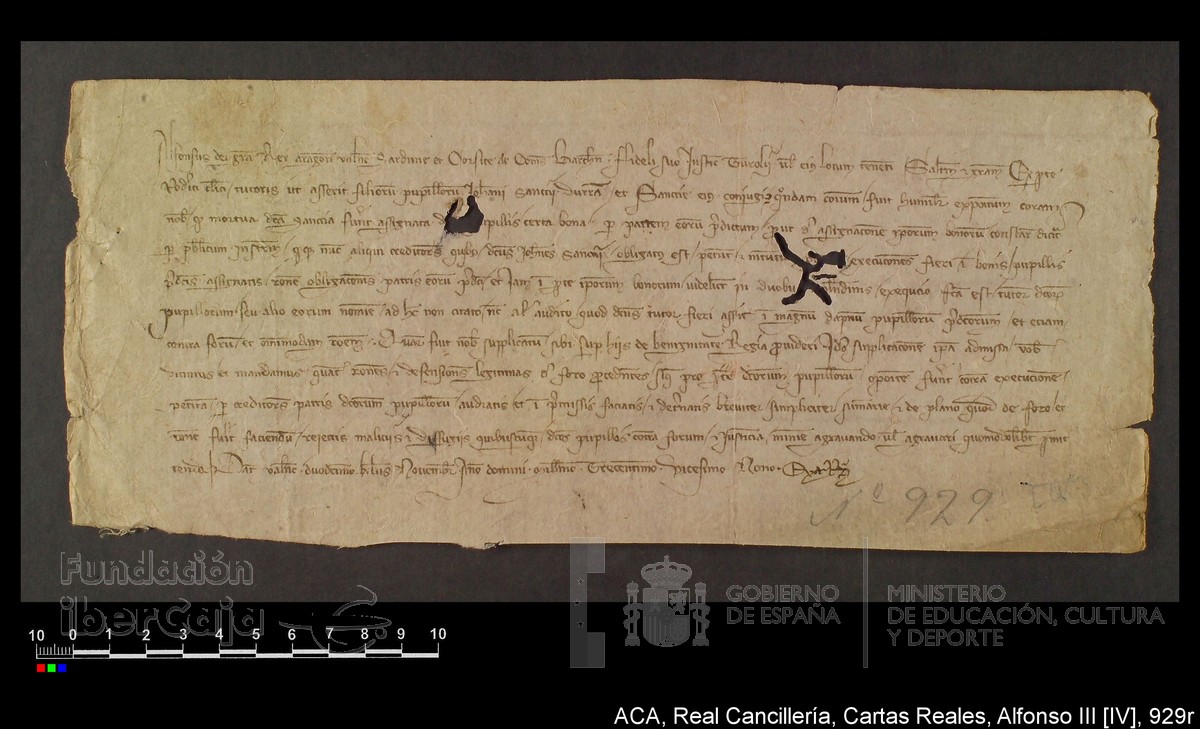 Alfonsus dei gra Rex aragon valne Sardinie et Corsice ac Coms Barchn fideli suo Justic Turolij vel eius locum tenenti Saltm et gram Ex pte
tutoris ut asserit filiorum pupillorum Johanis Sancij et Sancie eius conjugis quondam eorum fuit humilr expositum coram
nob q mortua dca Sancia fuerit assignata pupillis certa bona p patrem eorum pdictum prout de assignacone iporum bonorum constare dicit
p publicum instrum q nunc aliqui creditores quibus dcus Johnes obligatus est petunt execuciones fieri in bonis pupillis
pdcis assignatis rone obligaconis patris eorum pdci et iam in pte iporum bonorum videlicet in duobus exequcio fca est tutore dcorum
pupillorum seu alio eorum nomine ad hoc non citato nec audito quod dcus tutor fieri asserit in magnum dapnum pupillorum pdcorum et eciam
contra forum et omnimodam roem Quare fuit nob supplicatum sibi sup hiis de benignitate Regia provideri Ideo supplicacone ipa admissa vob
dicimus et mandamus quat rones et defensiones legitimas de foro procedentes pro pte dcorum pupillorum contra execucione
petita p creditores patris dcorum pupillorum audiatis et in pmissis faciatis et decernatis breviter simpliciter sumarie et de plano quod de foro et
rone fuerit faciendum reiectis maliciis et diffugiis quibuscumque dcos pupillos contra forum et Justicia minime agravando vel agravari quomodolibet pmit
tendo Dat valne duodecimo kls Novembr Anno domini millmo Trecentimo vicesimo Nono
Nº 929
Fundación
ibercaja
GOBIERNO
DE ESPAÑA
MINISTERIO
DE EDUCACIÓN, CULTURA
Y DEPORTE
10 0 1 2 3 4 5 6 7 8 9 10
ACA, Real Cancillería, Cartas Reales, Alfonso III [IV], 929r